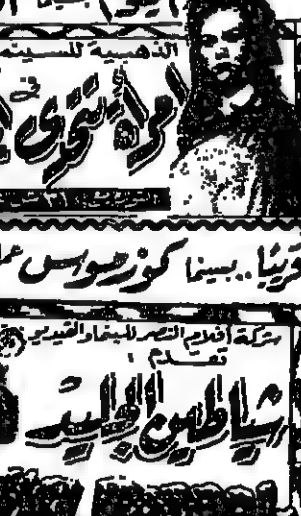 الذهبية للسينما
في
امرأة تتحدى
التوزيع: ٣١ ش
قريبًا.. بسينما كوزموس
شركة أفلام النصر للسينما والفيديو
تقدم:
شياطين الجليد